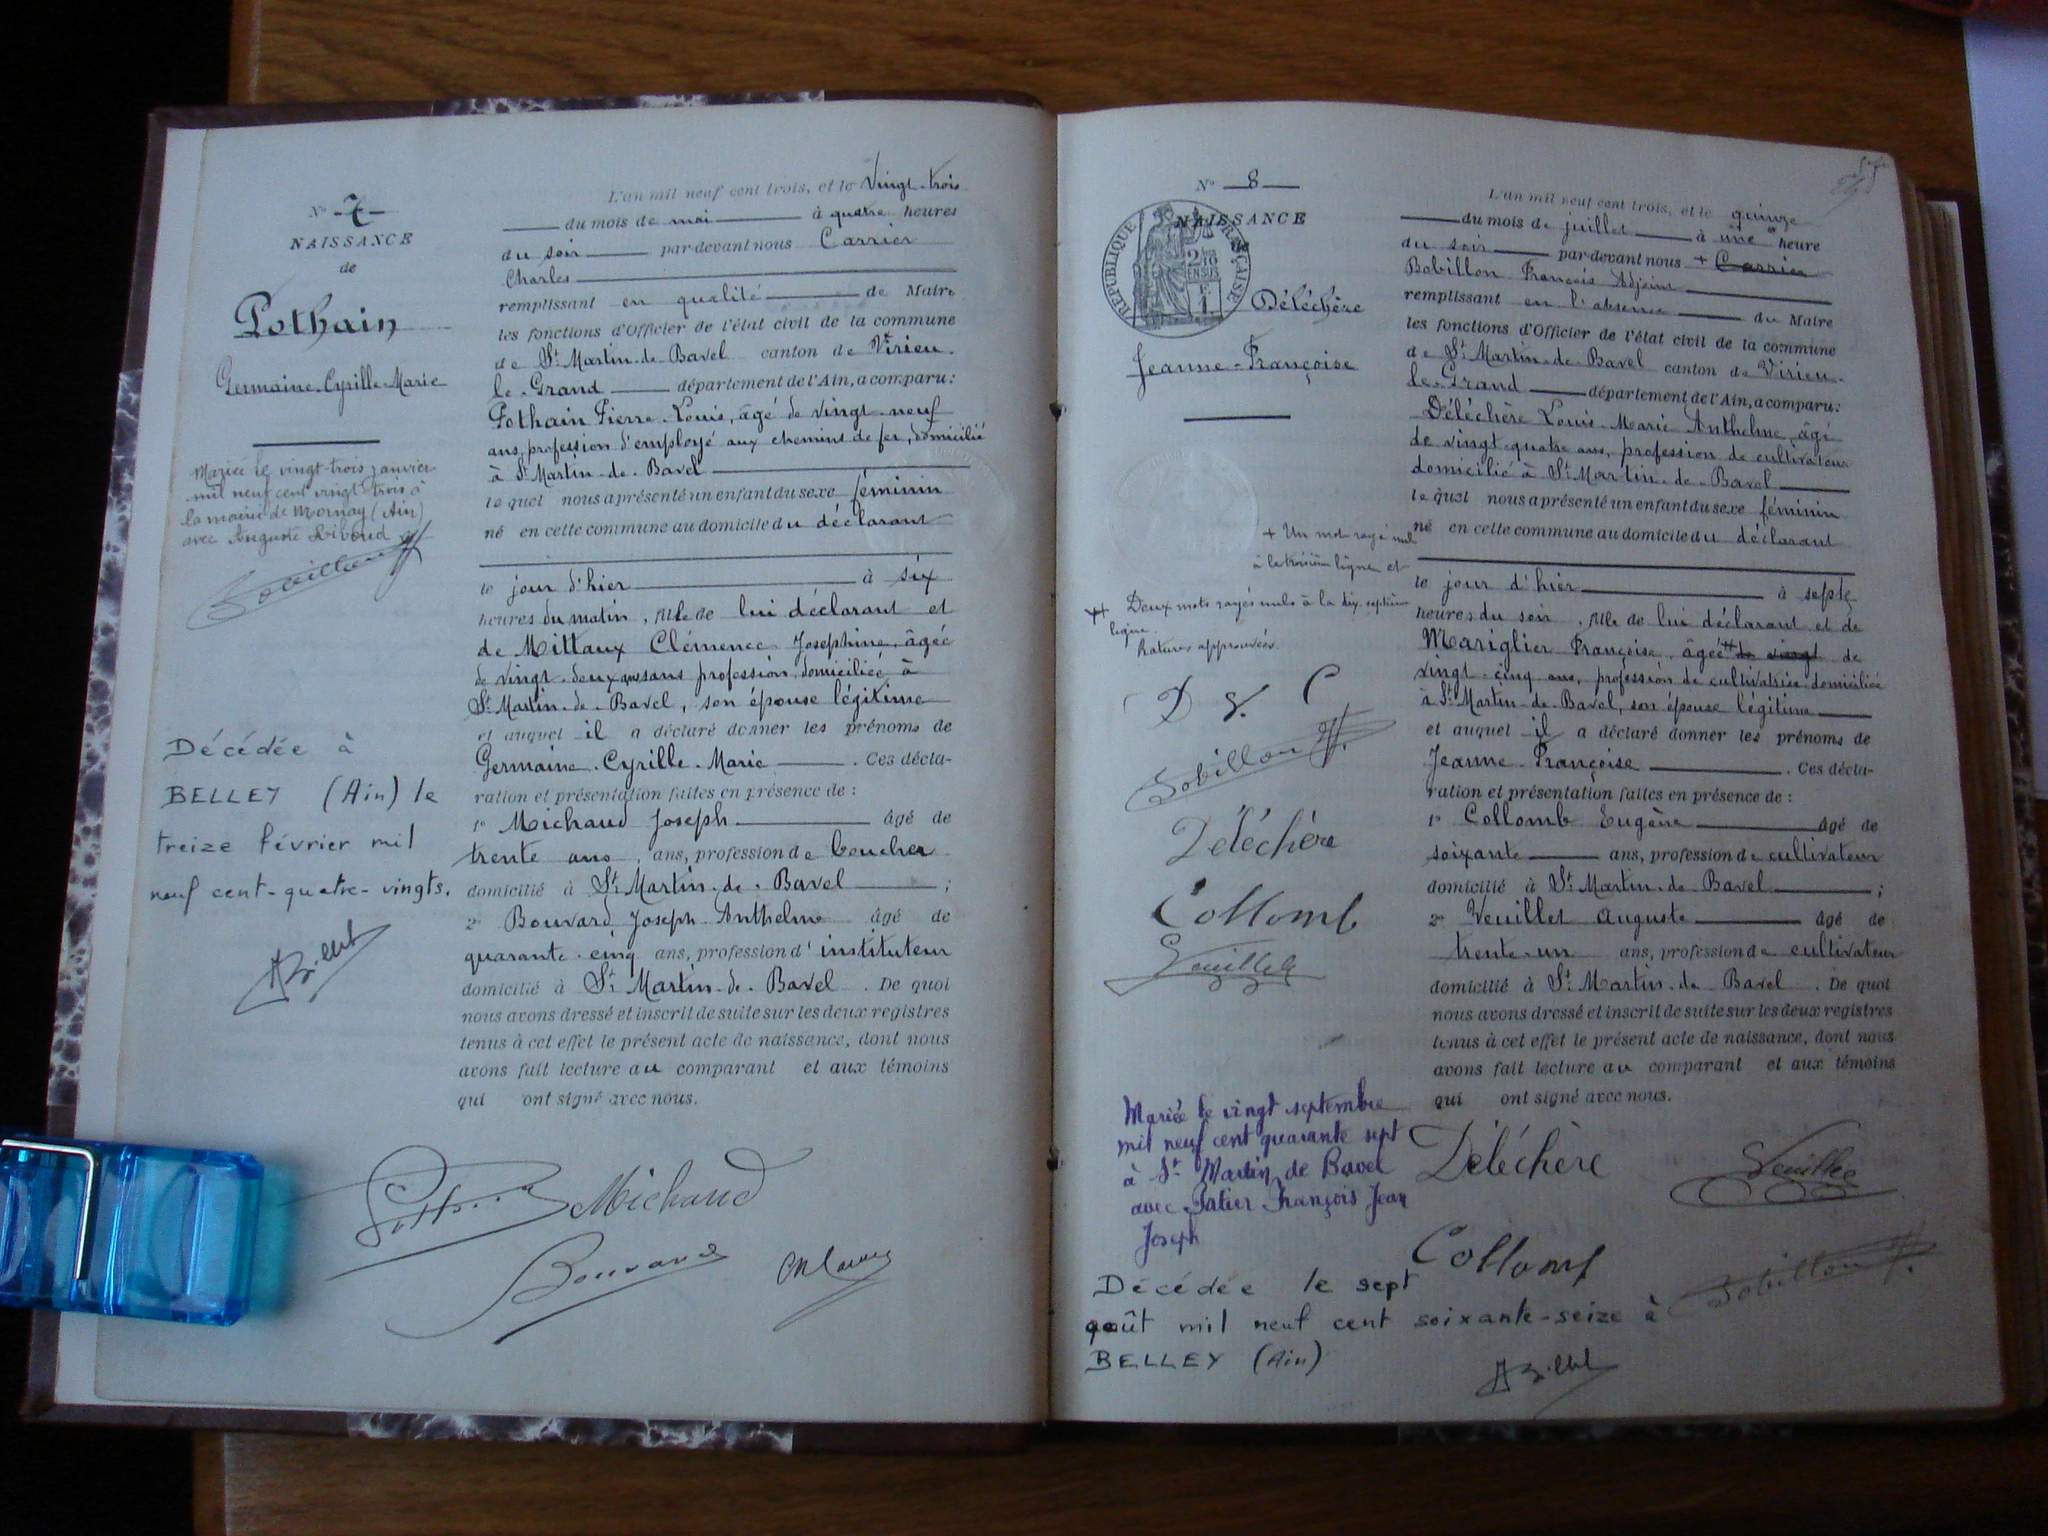 N° 7
NAISSANCE
de
Pothain
Germaine-Cyrille-Marie
Mariée le vingt-trois janvier
mil neuf cent vingt trois à
la mairie de Mornay (Ain)
avec Auguste Riboud
Bobillon
Décédée à
BELLEY (Ain) le
treize février mil
neuf cent-quatre-vingts.
L'an mil neuf cent trois, et le vingt-trois
du mois de mai à quatre heures
du soir par-devant nous Carrier
Charles
remplissant en qualité de Maire
les fonctions d'Officier de l'état civil de la commune
de St Martin-de-Bavel canton de Virieu-
le-Grand département de l'Ain, a comparu:
Pothain Pierre-Louis, âgé de vingt-neuf
ans, profession d'employé aux chemins de fer, domicilié
à St Martin-de-Bavel
lequel nous a présenté un enfant du sexe féminin
né en cette commune au domicile du déclarant
le jour d'hier à six
heures du matin, fille de lui déclarant et
de Mittaux Clémence Josephine, âgée
de vingt-deux ans sans profession, domiciliée à
St Martin-de-Bavel, son épouse légitime
et auquel il a déclaré donner les prénoms de
Germaine-Cyrille-Marie. Ces décla-
ration et présentation faites en présence de :
1° Michaud Joseph âgé de
trente ans, ans, profession de boucher
domicilié à St Martin-de-Bavel ;
2° Bouvard Joseph-Anthelme âgé de
quarante-cinq ans, profession d'instituteur
domicilié à St Martin-de-Bavel. De quoi
nous avons dressé et inscrit de suite sur les deux registres
tenus à cet effet le présent acte de naissance, dont nous
avons fait lecture au comparant et aux témoins
qui ont signé avec nous.
Pothain Michaud
Bouvard
N° 8
NAISSANCE
RÉPUBLIQUE FRANÇAISE
2/10 EN SUS
Déléchère
Jeanne-Françoise
+ Un mot rayé nul
à la troisième ligne et
Deux mots rayés nuls à la dix-septième
ligne.
Ratures approuvées.
D V. C
Bobillon
Déléchère
Collomb
Veuillet
Mariée le vingt septembre
mil neuf cent quarante sept
à St Martin de Bavel
avec Patier François Jean
Joseph
Décédée le sept
août mil neuf cent soixante-seize à
BELLEY (Ain)
L'an mil neuf cent trois, et le quinze
du mois de juillet à une heure
du soir par-devant nous + Carrier
Bobillon François Adjoint
remplissant en l'absence du Maire
les fonctions d'Officier de l'état civil de la commune
de St Martin-de-Bavel canton de Virieu-
le-Grand département de l'Ain, a comparu:
Déléchère Louis-Marie Anthelme, âgé
de vingt-quatre ans, profession de cultivateur
domicilié à St Martin-de-Bavel
lequel nous a présenté un enfant du sexe féminin
né en cette commune au domicile du déclarant
le jour d'hier à sept
heures du soir, fille de lui déclarant et de
Mariglier Françoise, âgée de vingt de
vingt-cinq ans, profession de cultivatrice domiciliée
à St Martin-de-Bavel, son épouse légitime
et auquel il a déclaré donner les prénoms de
Jeanne-Françoise. Ces décla-
ration et présentation faites en présence de :
1° Collomb Eugène âgé de
soixante ans, profession de cultivateur
domicilié à St Martin-de-Bavel ;
2° Veuillet Auguste âgé de
trente-un ans, profession de cultivateur
domicilié à St Martin-de-Bavel. De quoi
nous avons dressé et inscrit de suite sur les deux registres
tenus à cet effet le présent acte de naissance, dont nous
avons fait lecture au comparant et aux témoins
qui ont signé avec nous.
Déléchère Veuillet
Collomb Bobillon